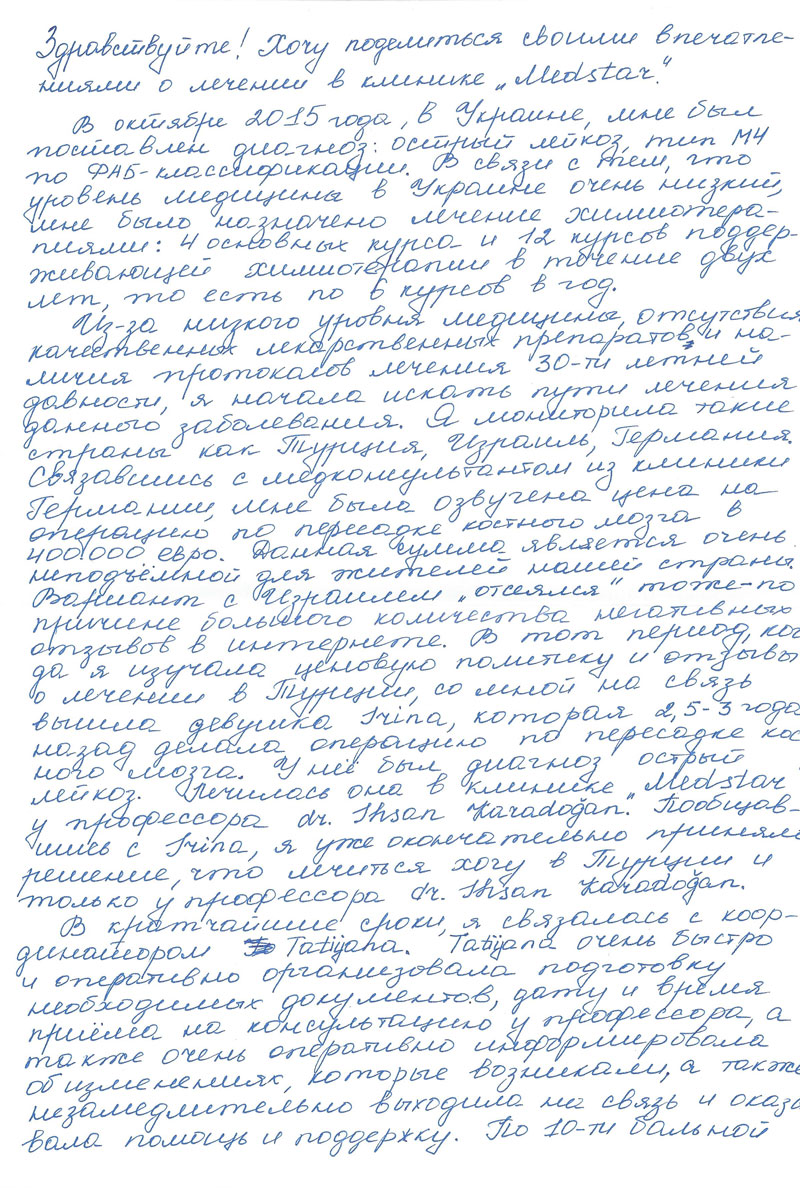 Здравствуйте! Хочу поделиться своими впечатле-
ниями о лечении в клинике „Medstar".
В октябре 2015 года, в Украине, мне был
поставлен диагноз: острый лейкоз, тип М4
по ФАБ-классификации. В связи с тем, что
уровень медицины в Украине очень низкий,
мне было назначено лечение химиотера-
пиями: 4 основных курса и 12 курсов поддер-
живающей химиотерапии в течение двух
лет, то есть по 6 курсов в год.
Из-за низкого уровня медицины, отсутствия
качественных лекарственных препаратов и на-
личия протоколов лечения 30-ти летней
давности, я начала искать пути лечения
данного заболевания. Я мониторила такие
страны как Турция, Израиль, Германия.
Связавшись с медконсультантом из клиники
Германии, мне была озвучена цена на
операцию по пересадке костного мозга в
400 000 евро. Данная сумма является очень
неподъёмной для жителей нашей страны.
Вариант с Израилем „отсеялся" тоже-по
причине большого количества негативных
отзывов в интернете. В тот период, ког
да я изучала ценовую политику и отзывы
о лечении в Турции, со мной на связь
вышла девушка Irina, которая 2,5-3 года
назад делала операцию по пересадке кос
ного мозга. У неё был диагноз острый
лейкоз. Лечилась она в клинике „Medstar
у профессора dr. Ihsan Karadoğan. Пообщав-
шись с Irina, я уже окончательно приняла
решение, что лечиться хочу в Турции и
только у профессора dr. Ihsan Karadoğan.
В кратчайшие сроки, я связалась с коор-
динатором Tatiyana. Tatiyana очень быстро
и оперативно организовала подготовку
необходимых документов, дату и время
приёма на консультацию у профессора, а
также очень оперативно информировала
об изменениях, которые возникали, а также
незамедлительно выходила на связь и оказы
вала помощь и поддержку. По 10-ти бальной